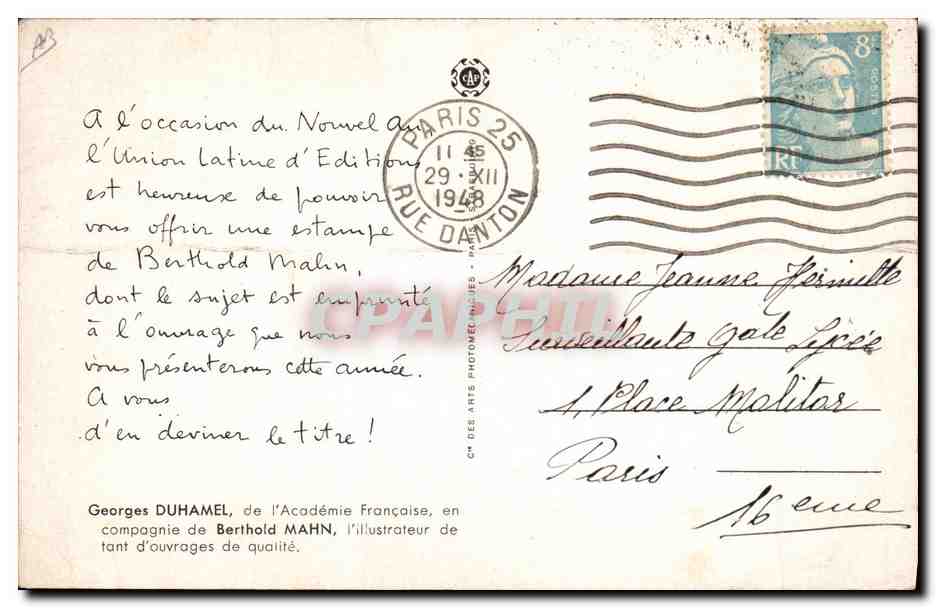 AB
A l'occasion du Nouvel an
l'Union Latine d'Editions
est heureuse de pouvoir
vous offrir une estampe
de Berthold Mahn,
dont le sujet est emprunté
à l'ouvrage que nous
vous présenterons cette année.
A vous
d'en deviner le titre !
Georges DUHAMEL, de l'Académie Française, en
compagnie de Berthold MAHN, l'illustrateur de
tant d'ouvrages de qualité.
CAP
PARIS 25
11 45
29 · XII
1948
RUE DANTON
Cie DES ARTS PHOTOMÉCANIQUES - PARIS - STRASBOURG
8F
POSTES
RF
Madame Jeanne
Surveillante Gale Lycée
1, Place Malitar
Paris
16eme
CPAPHIL